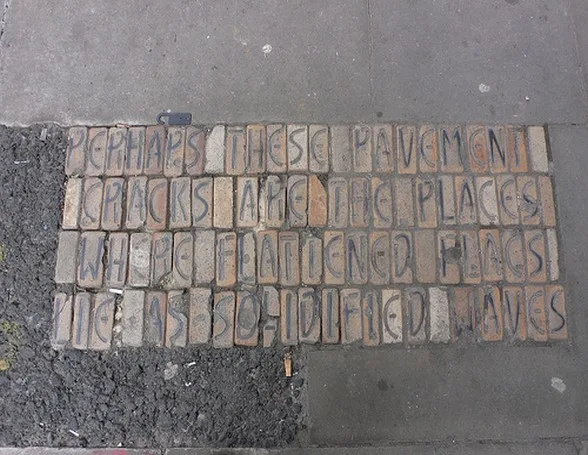 PERHAPS THESE PAVEMENT
CRACKS ARE THE PLACES
WHERE FLATTENED FLAGS
LIE AS SOLIDIFIED WAVES